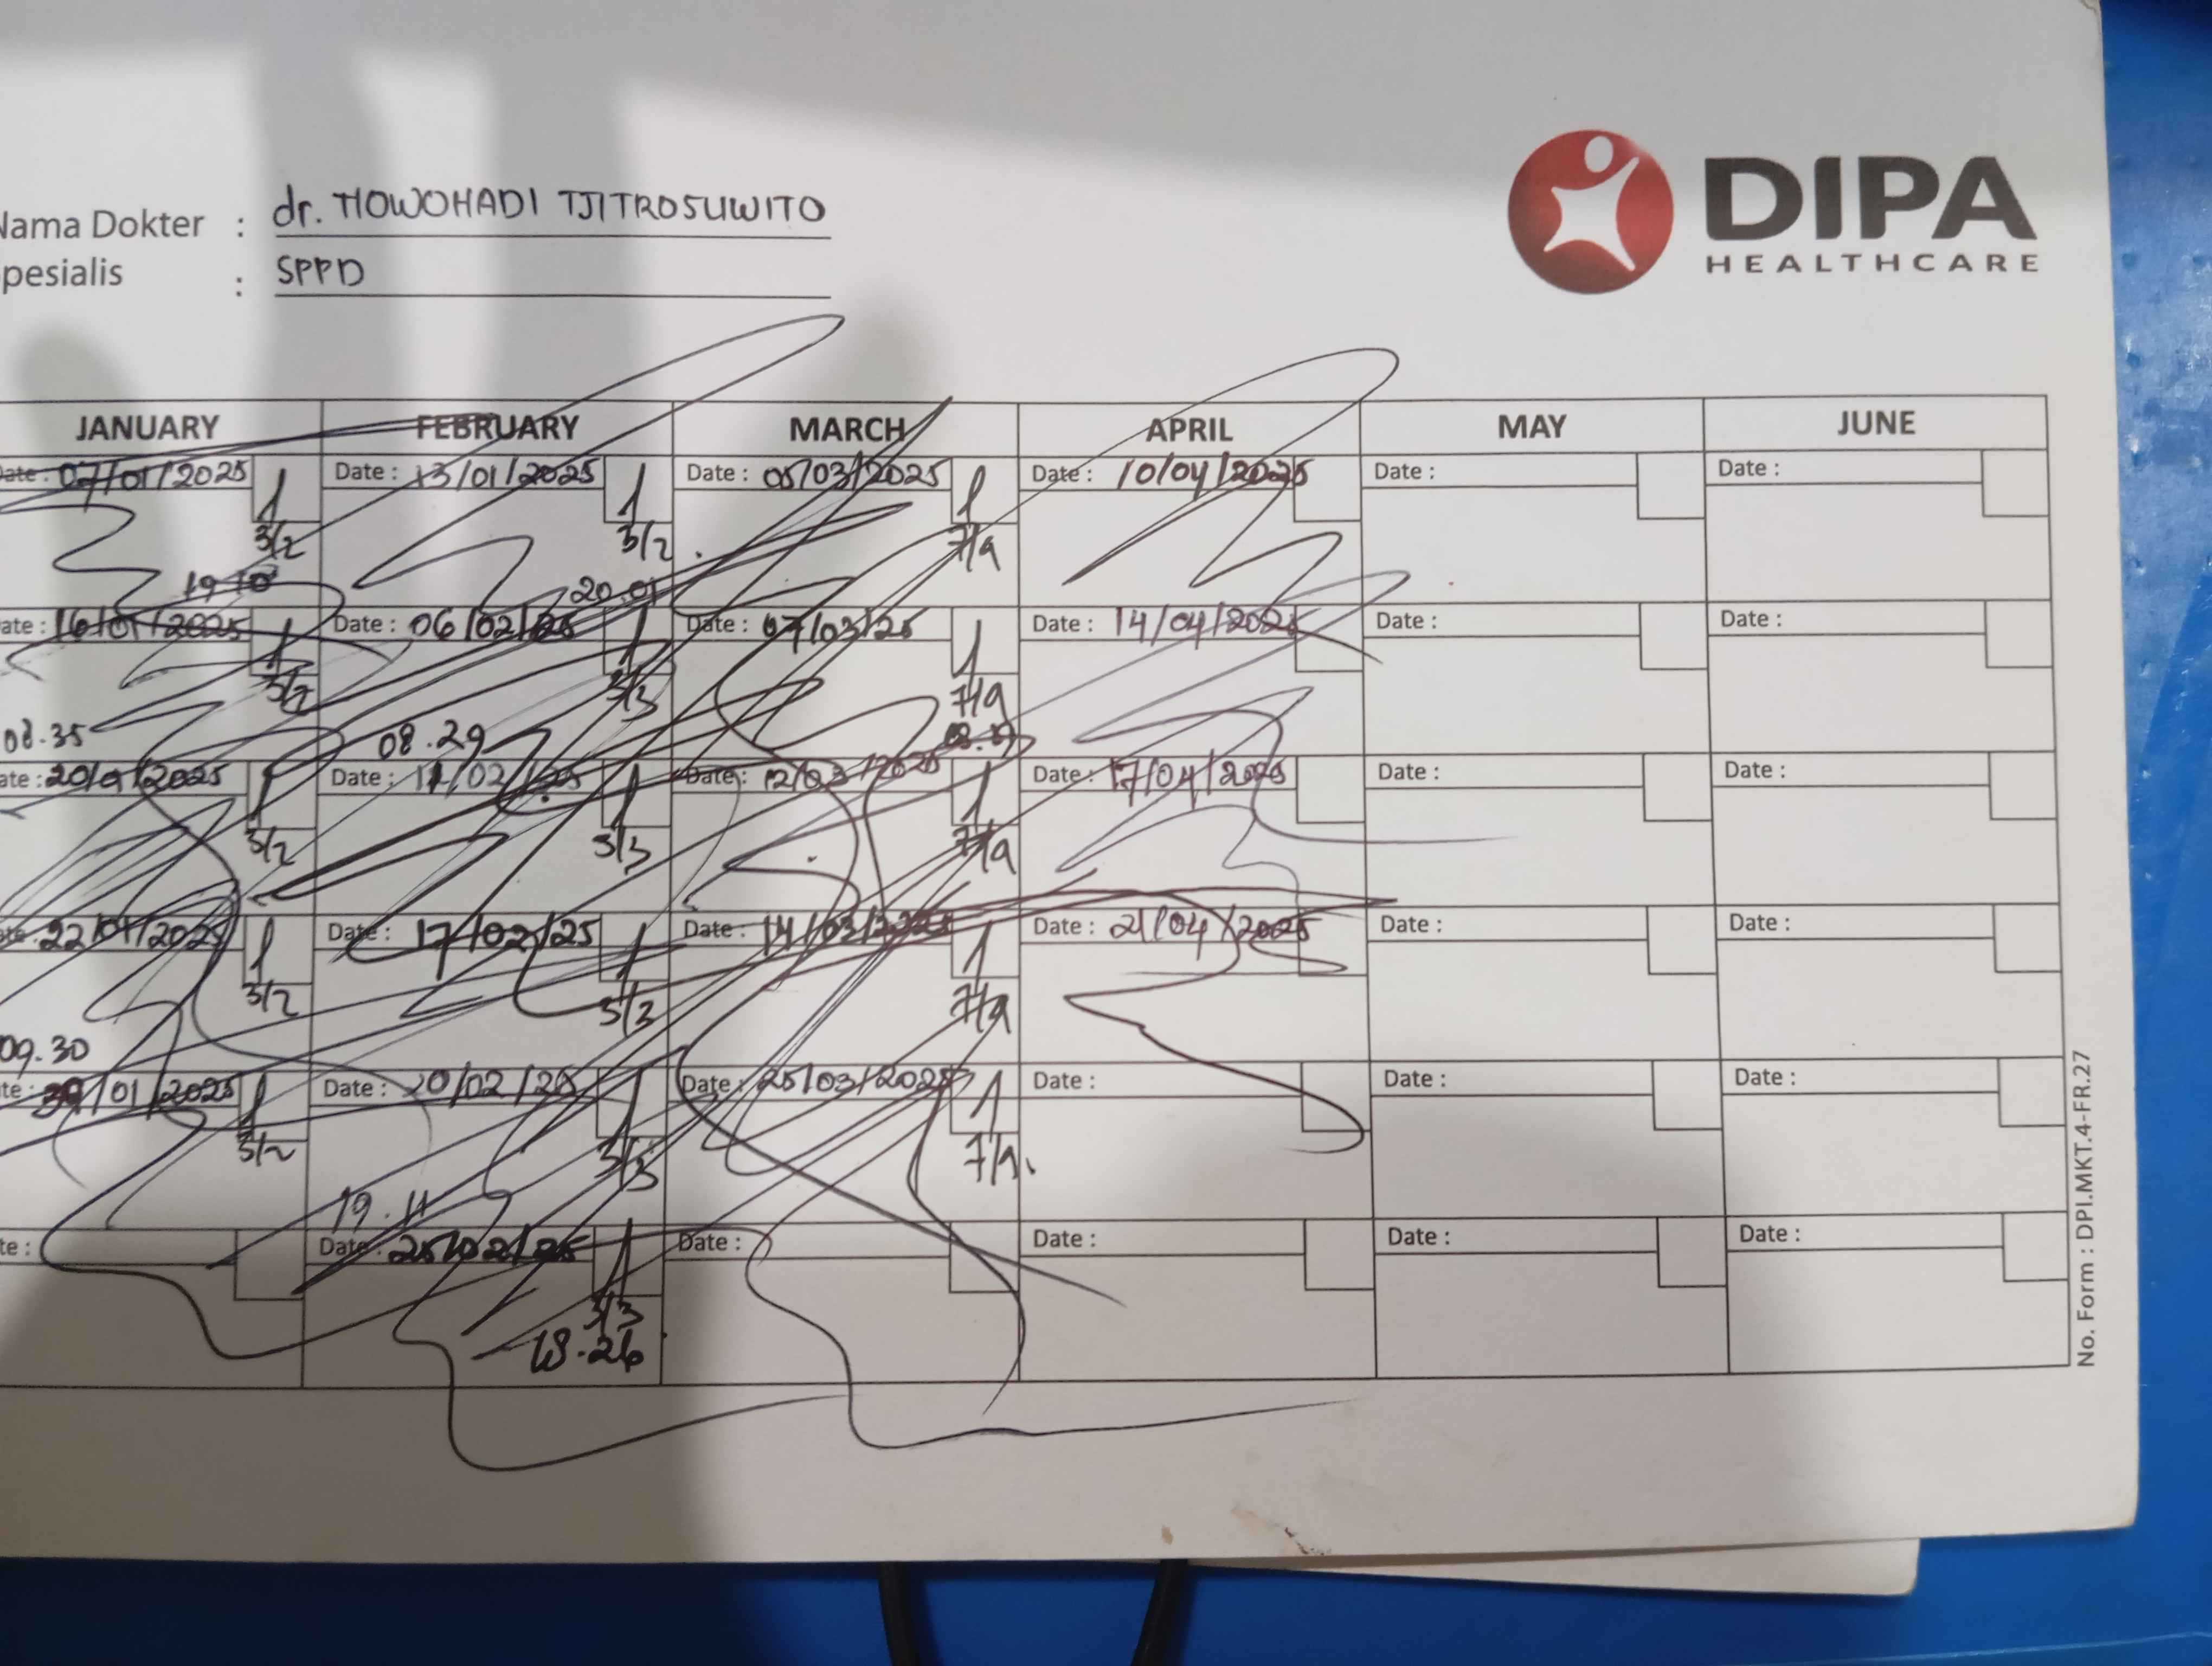 DIPA
HEALTHCARE
Nama Dokter : dr. HOWOHADI TJITROSUWITO
pesialis : SPPD
JANUARY FEBRUARY MARCH APRIL MAY JUNE
Date : 07/01/2025 Date : 13/01/2025 Date : 05/03/2025 Date : 10/04/2025 Date : Date :
3/2 3/2 7/4
19.10 20.01
ate : 16/01/2025 Date : 06/02/25 Date : 07/03/25 Date : 14/04/2025 Date : Date :
3/2 3/3 7/4
08.35 08.29
ate : 20/01/2025 Date : 11/02/25 Date : 12/03/2025 Date : 17/04/2025 Date : Date :
3/2 3/3 7/4
22/01/2025 Date : 17/02/25 Date : 14/03/2025 Date : 21/04/2025 Date : Date :
3/2 3/3 7/4
09.30
te : 30/01/2025 Date : 20/02/25 Date : 25/03/2025 Date : Date : Date :
3/2 3/3 7/4
19.11
te : Date : 25/02/25 Date : Date : Date : Date :
3/3
18.26
No. Form : DPI.MKT.4-FR.27